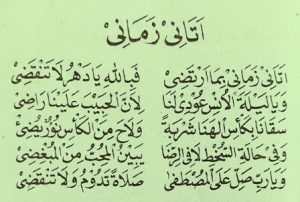 اَتَانِیْ زَمَانِیْ
اَتَانِیْ زَمَانِیْ بِمَا ارْتَضَیْ فَبِاللهِ يَادَهْرُ لَا تَنْقَضِیْ
وَيَا لَيْلَةَ الْاُنْسِ عُوْدِیْ لَنَا لِاَنَّ الْحَبِيْبَ عَلَيْنَا رَاضِیْ
سَقَانَا بِكَأْسٍ لَهَنَا شَرْبَةً وَلَاحَ مِنَ الْكَأْسِ نُوْرٌ يُضِیْءُ
وَفِیْ حَالَةِ السُّخْطِ لَا فِی الرِّضَا يَبِيْنُ الْمُحِبُّ مِنَ الْمُبْغِضِیْ
وَيَارَبِّ صَلِّ عَلَی الْمُصْطَفَی صَلَاةً تَدُوْمُ وَلَا تَنْقَضِیْ